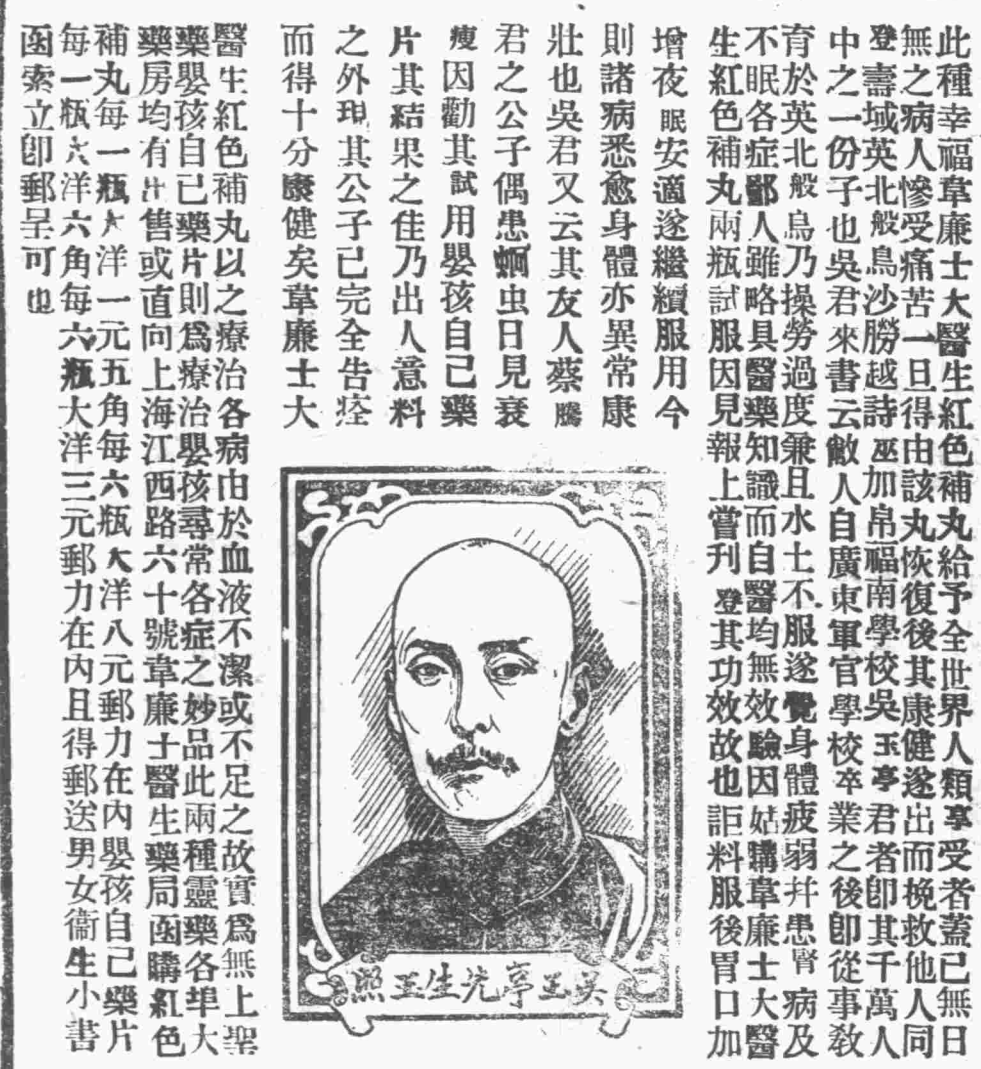 此種幸福韋廉士大醫生紅色補丸給予全世界人類享受者蓋已無日
無之病人慘受痛苦一旦得由該丸恢復後其康健遂出而挽救他人同
登壽域英北般鳥沙勝越詩巫加帛福南學校吳玉亭君者卽其千萬人
中之一份子也吳君來書云敝人自廣東軍官學校卒業之後卽從事敎
育於英北般鳥乃操勞過度兼且水土不服遂覺身體疲弱幷患腎病及
不眠各症鄙人雖略具醫藥知識而自醫均無效驗因姑購韋廉士大醫
生紅色補丸兩瓶試服因見報上嘗刊登其功效故也詎料服後胃口加
增夜眠安適遂繼續服用今
則諸病悉愈身體亦異常康
壯也吳君又云其友人蔡騰
君之公子偶患蛔虫日見衰
瘦因勸其試用嬰孩自己藥
片其結果之佳乃出人意料
之外現其公子已完全告痊
而得十分康健矣韋廉士大
醫生紅色補丸以之療治各病由於血液不潔或不足之故實爲無上聖
藥嬰孩自己藥片則爲療治嬰孩尋常各症之妙品此兩種靈藥各埠大
藥房均有出售或直向上海江西路六十號韋廉士醫生藥局函購紅色
補丸每一瓶大洋一元五角每六瓶大洋八元郵力在內嬰孩自己藥片
每一瓶大洋六角每六瓶大洋三元郵力在內且得郵送男女衞生小書
函索立卽郵呈可也
照玉生先亭玉吳